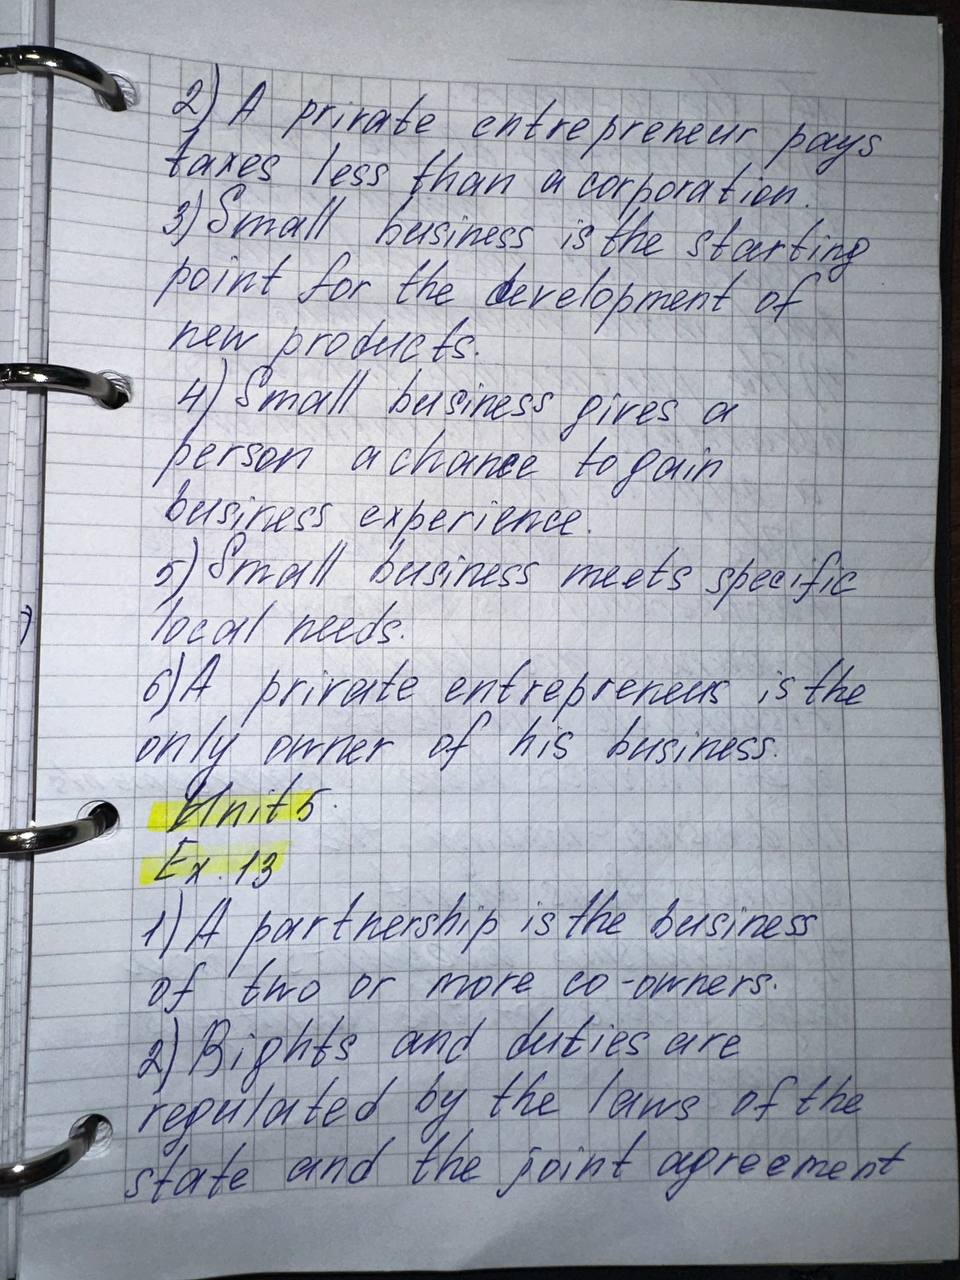 2) A private entrepreneur pays
taxes less than a corporation.
3) Small business is the starting
point for the development of
new products.
4) Small business gives a
person a chance to gain
business experience.
5) Small business meets specific
local needs.
6) A private entrepreneus is the
only owner of his business.
Unit 5.
Ex. 13
1) A partnership is the business
of two or more co-owners.
2) Rights and duties are
regulated by the laws of the
state and the joint agreement